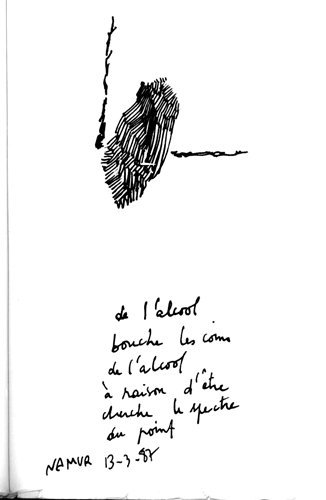 de l'alcool
bouche les coins
de l'alcool
à raison d'être
cherche le spectre
du point
NAMUR 13-3-87